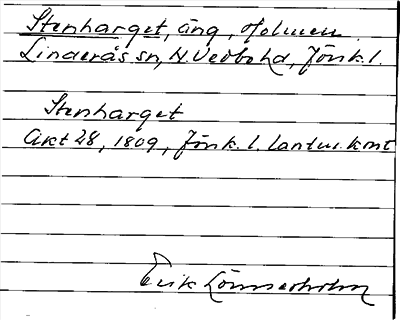 Stenharget, äng, Holmen
Linderås sn, N. Vedbo hd, Jönk. l.
Stenharget
Akt 28, 1809, Jönk. l. lantm. knt
Erik Lönnerholm